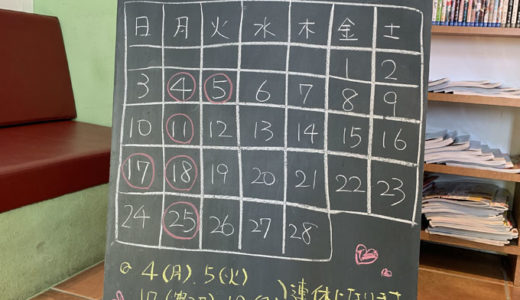 日 月 火 水 木 金 土
1 2
3 4 5 6 7 8 9
10 11 12 13 14 15 16
17 18 19 20 21 22 23
24 25 26 27 28
4(月).5(火)
17( 連休になります